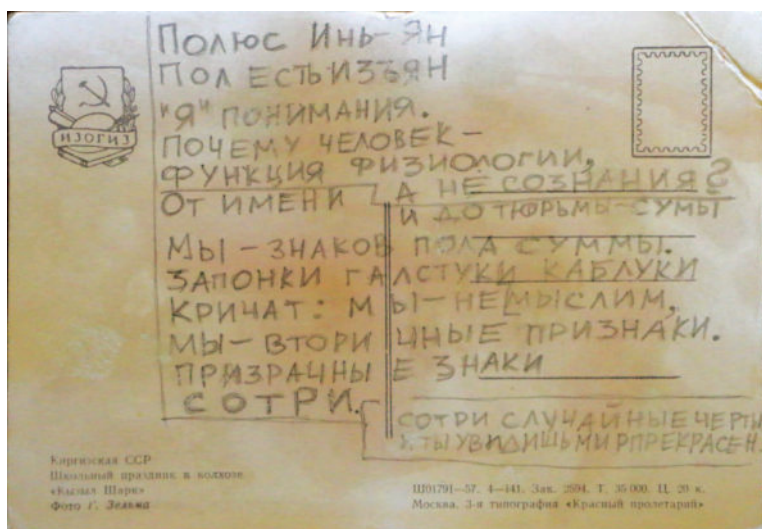 ПОЛЮС ИНЬ-ЯН
ПОЛ ЕСТЬ ИЗЪЯН
"Я" ПОНИМАНИЯ.
ПОЧЕМУ ЧЕЛОВЕК -
ФУНКЦИЯ ФИЗИОЛОГИИ,
А НЕ СОЗНАНИЯ?
ОТ ИМЕНИ И ДО ТЮРЬМЫ-СУМЫ
МЫ - ЗНАКОВ ПОЛА СУММЫ.
ЗАПОНКИ ГАЛСТУКИ КАБЛУКИ
КРИЧАТ: МЫ - НЕМЫСЛИМ,
МЫ - ВТОРИЧНЫЕ ПРИЗНАКИ.
ПРИЗРАЧНЫЕ ЗНАКИ
СОТРИ.
СОТРИ СЛУЧАЙНЫЕ ЧЕРТЫ
И ТЫ УВИДИШЬ МИР ПРЕКРАСЕН.
ИЗОГИЗ
Киргизская ССР
Школьный праздник в колхозе
«Кызыл Шарк»
Фото Г. Зельма
Ш01791—57. 4—441. Зак. 2594. Т. 35 000. Ц. 20 к.
Москва. 3-я типография «Красный пролетарий»